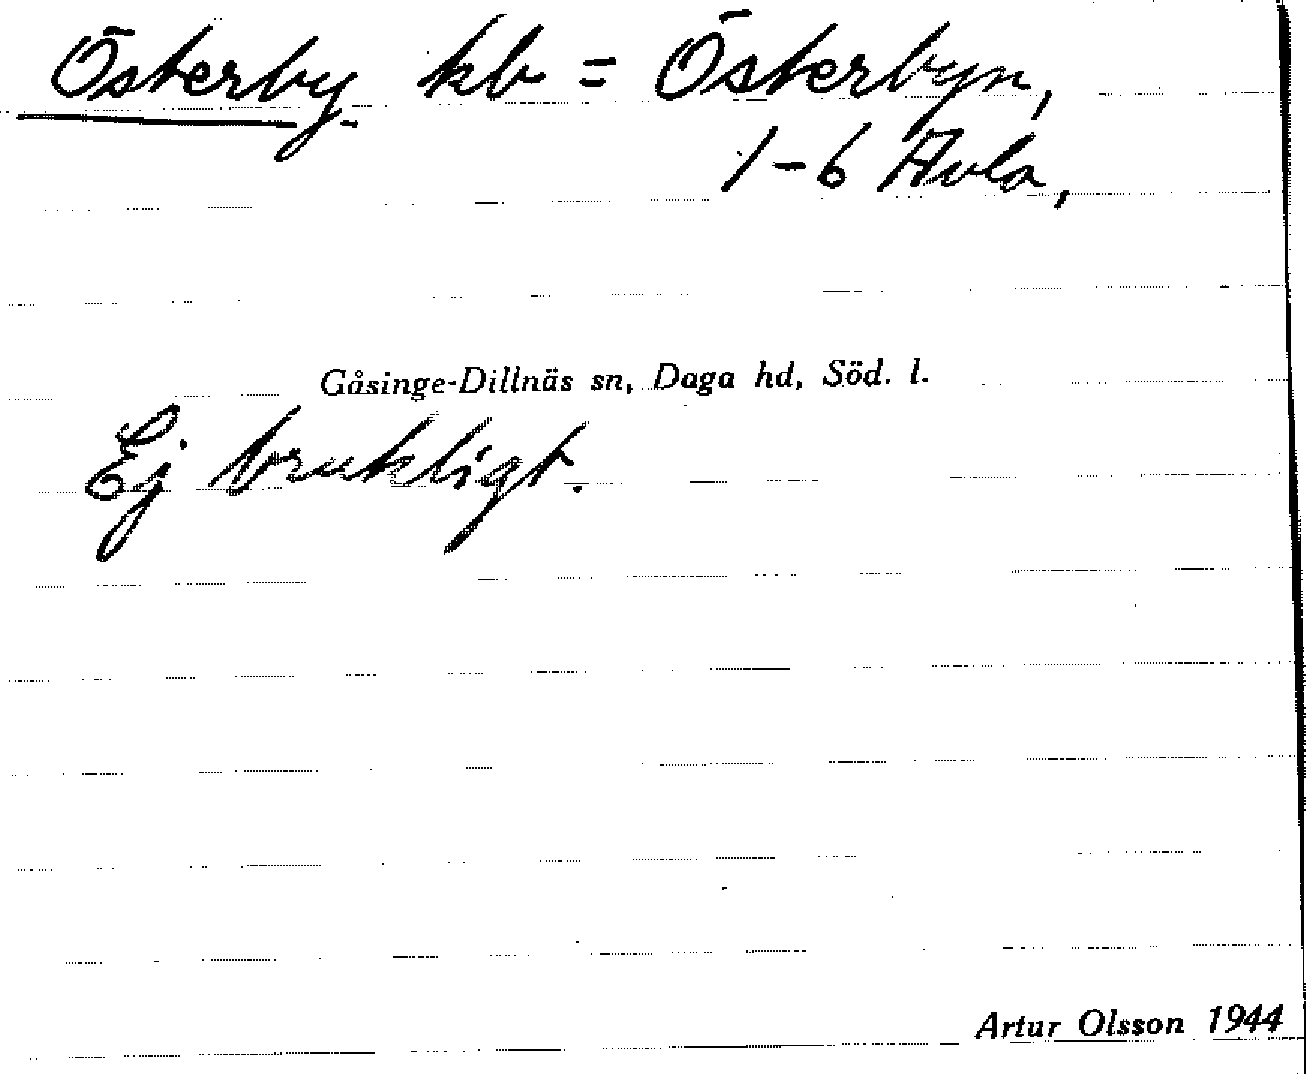 Österby kb = Österbyn,
1-6 Avla,
Gåsinge-Dillnäs sn, Daga hd, Söd. l.
Ej brukligt.
Artur Olsson 1944